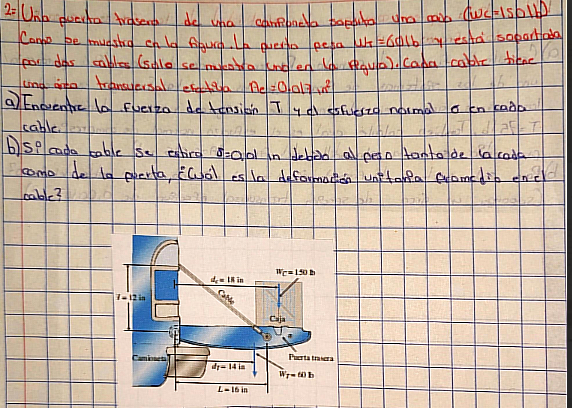 2= Una puerta trasera de una camioneta soporta una caja (Wc=150 lb)
Como se muestra en la figura. La puerta pesa WT=60lb y está soportada
por dos cables (solo se muestra uno en la figura). Cada cable tiene
una área transversal efectiva Ae=0.017 in²
a) Encuentre la fuerza de tensión T y el esfuerzo normal σ en cada
cable.
b) Si cada cable se estira δ=0,01 in debido al peso tanto de la caja
como de la puerta, ¿Cuál es la deformación unitaria promedio en el
cable?
WC = 150 lb
dc = 18 in
Cable
H = 12 in
Caja
Camioneta
Puerta trasera
dT = 14 in
WT = 60 lb
L = 16 in